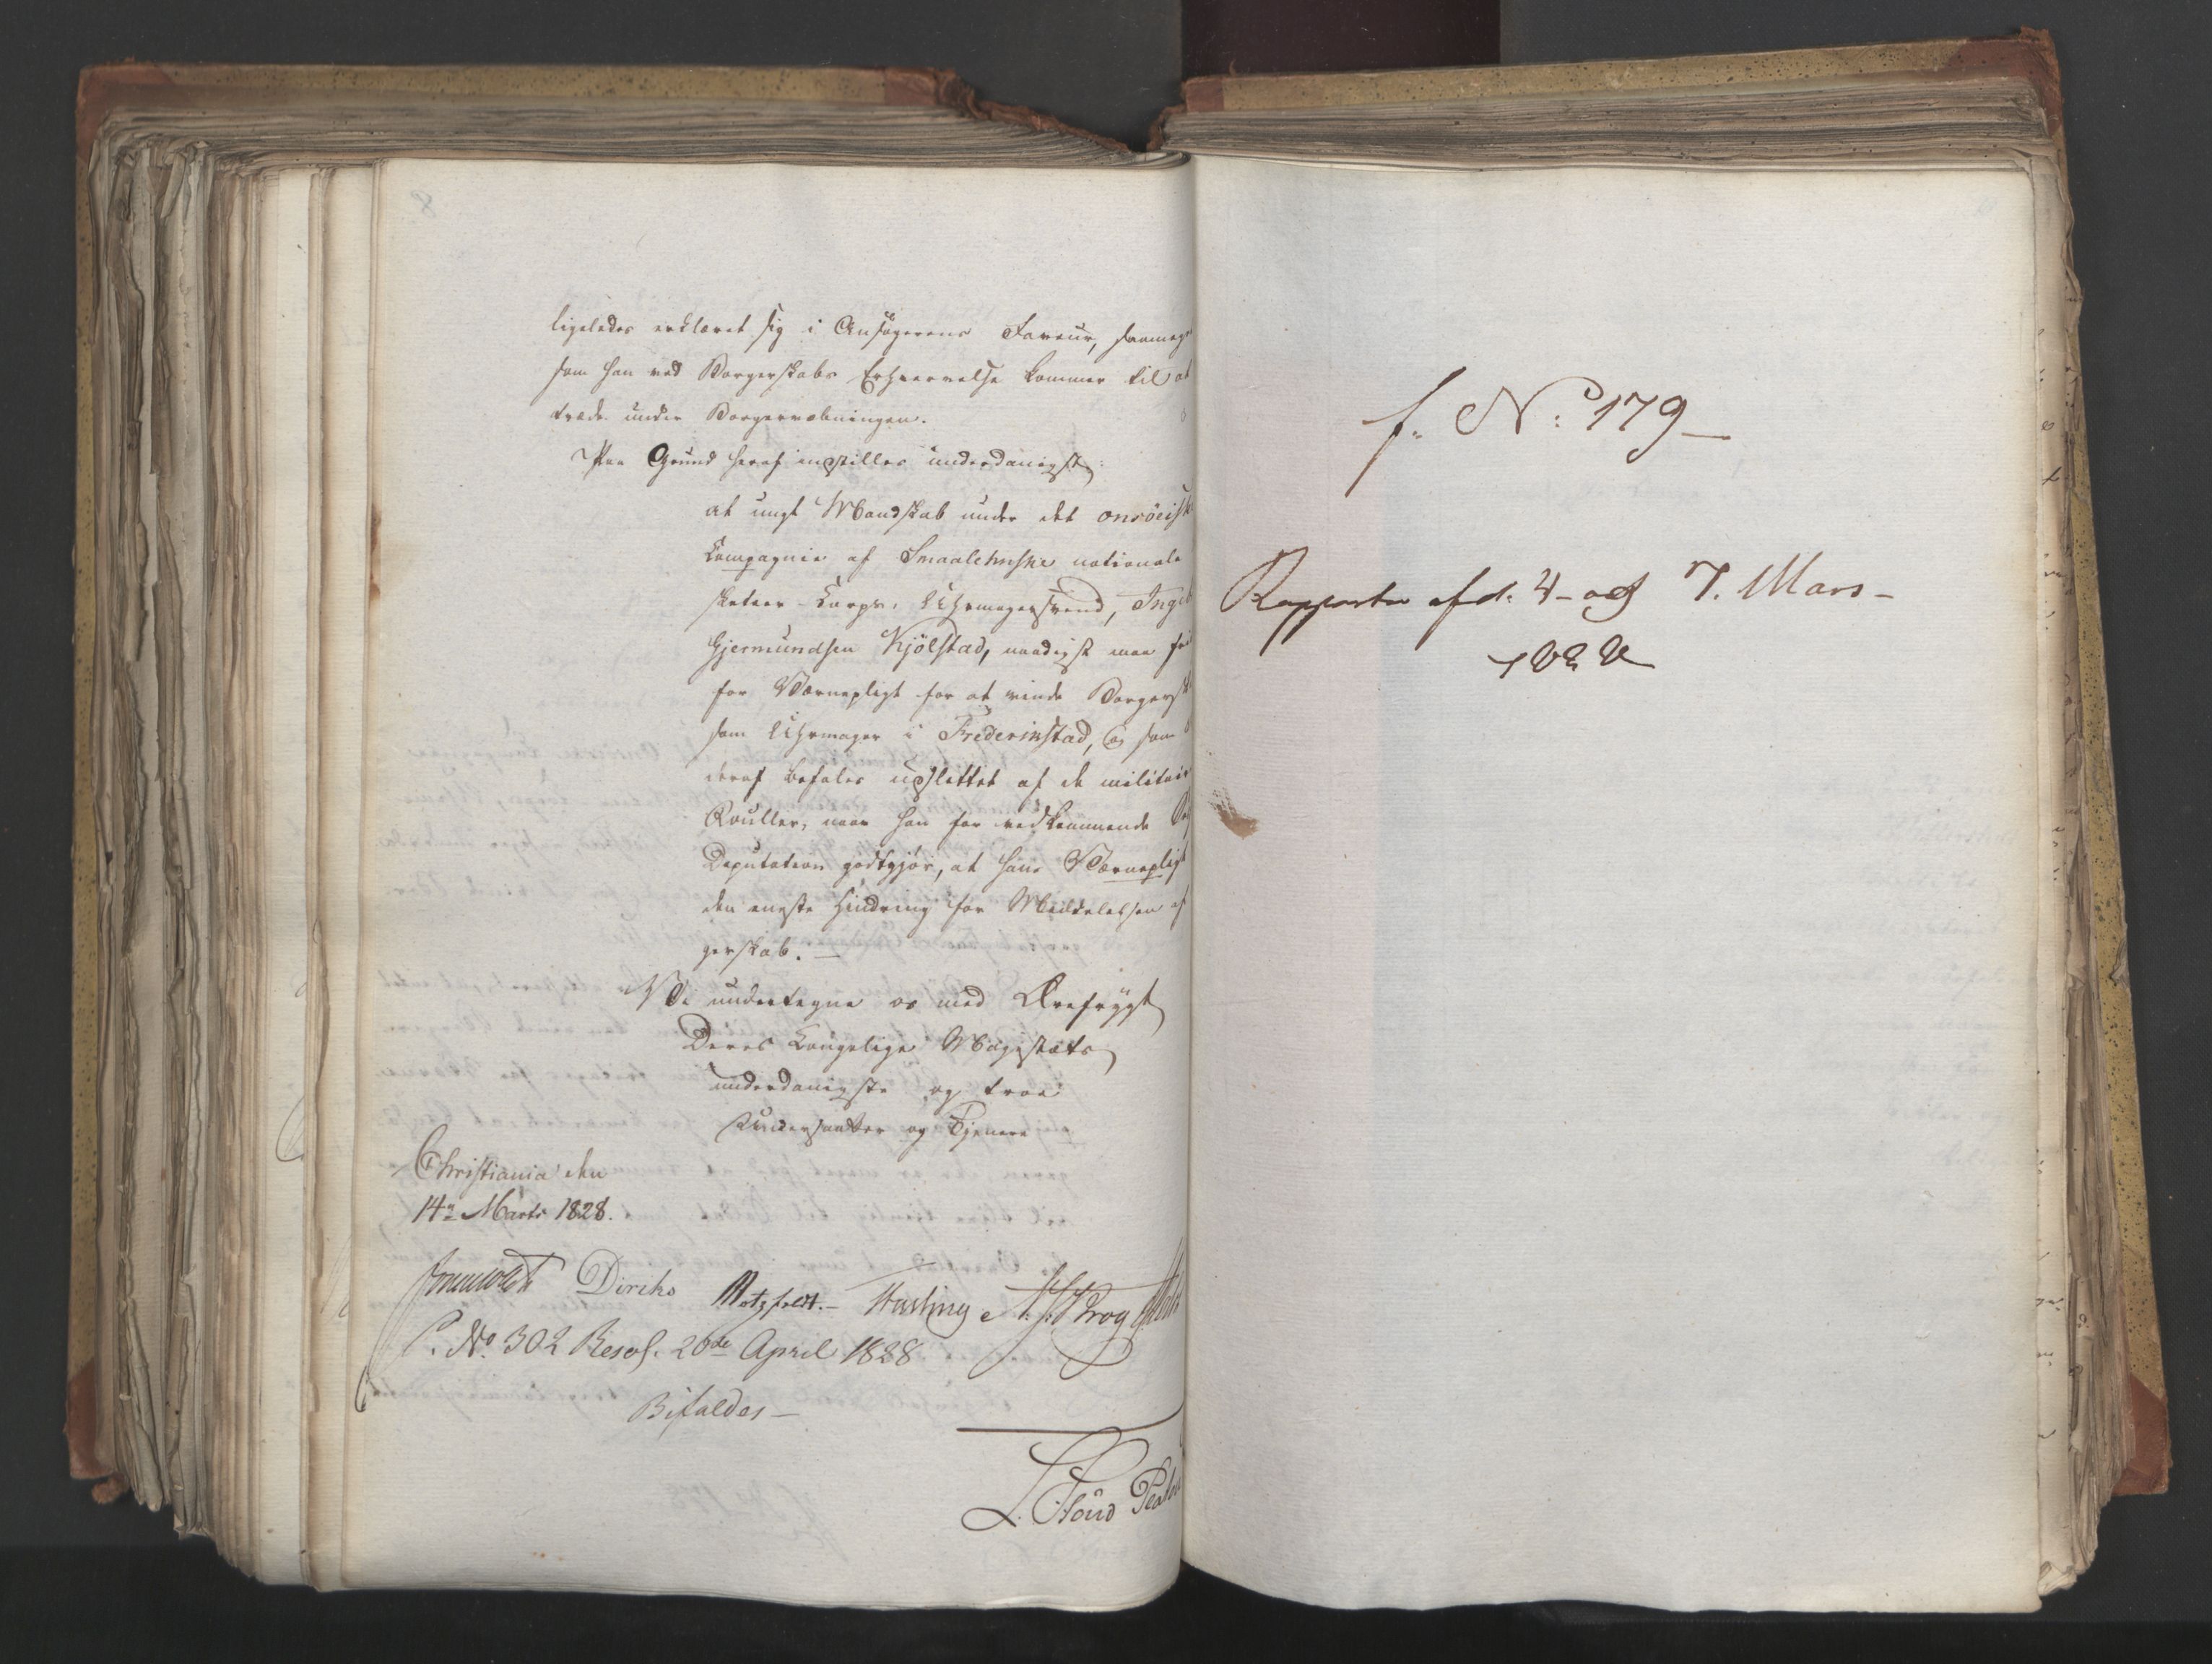 ligeledes erklæret sig i Ansøgerens Faveur, saameget
som han ved Borgerskabs Erhvervelse kommer til at
træde under Borgervæbningen.
Paa Grund heraf indstilles underdanigst:
at ungt Mandskab under det onsöeiske
Compagnie af Smaalehnske nationale
sketeer-Corps, Uhrmagersvend,
Gjermundsen Kjölstad, naadigst maa
for Værnepligt for at vinde Borgerskab
som Uhrmager i Frederikstad, og som
deraf befales udslettet af de militaire
Rouller, naar han for vedkommende
Deputation godtgjör, at hans Værnepligt
den eneste Hindring for Meddelelsen af
gerskab. —
Vi undertegne os med Ærefrygt
Deres Kongelige Majestæts
underdanigste og troe
Undersaatter og Tjenere
Christiania den
14de Marts 1828.
Diriks Motzfeldt. – Krog
P. No. 302 Resol. 26de April 1828
Bifaldes —
f. No: 179 —
Rapporter af d. 4 - og 7. Mars -
1828